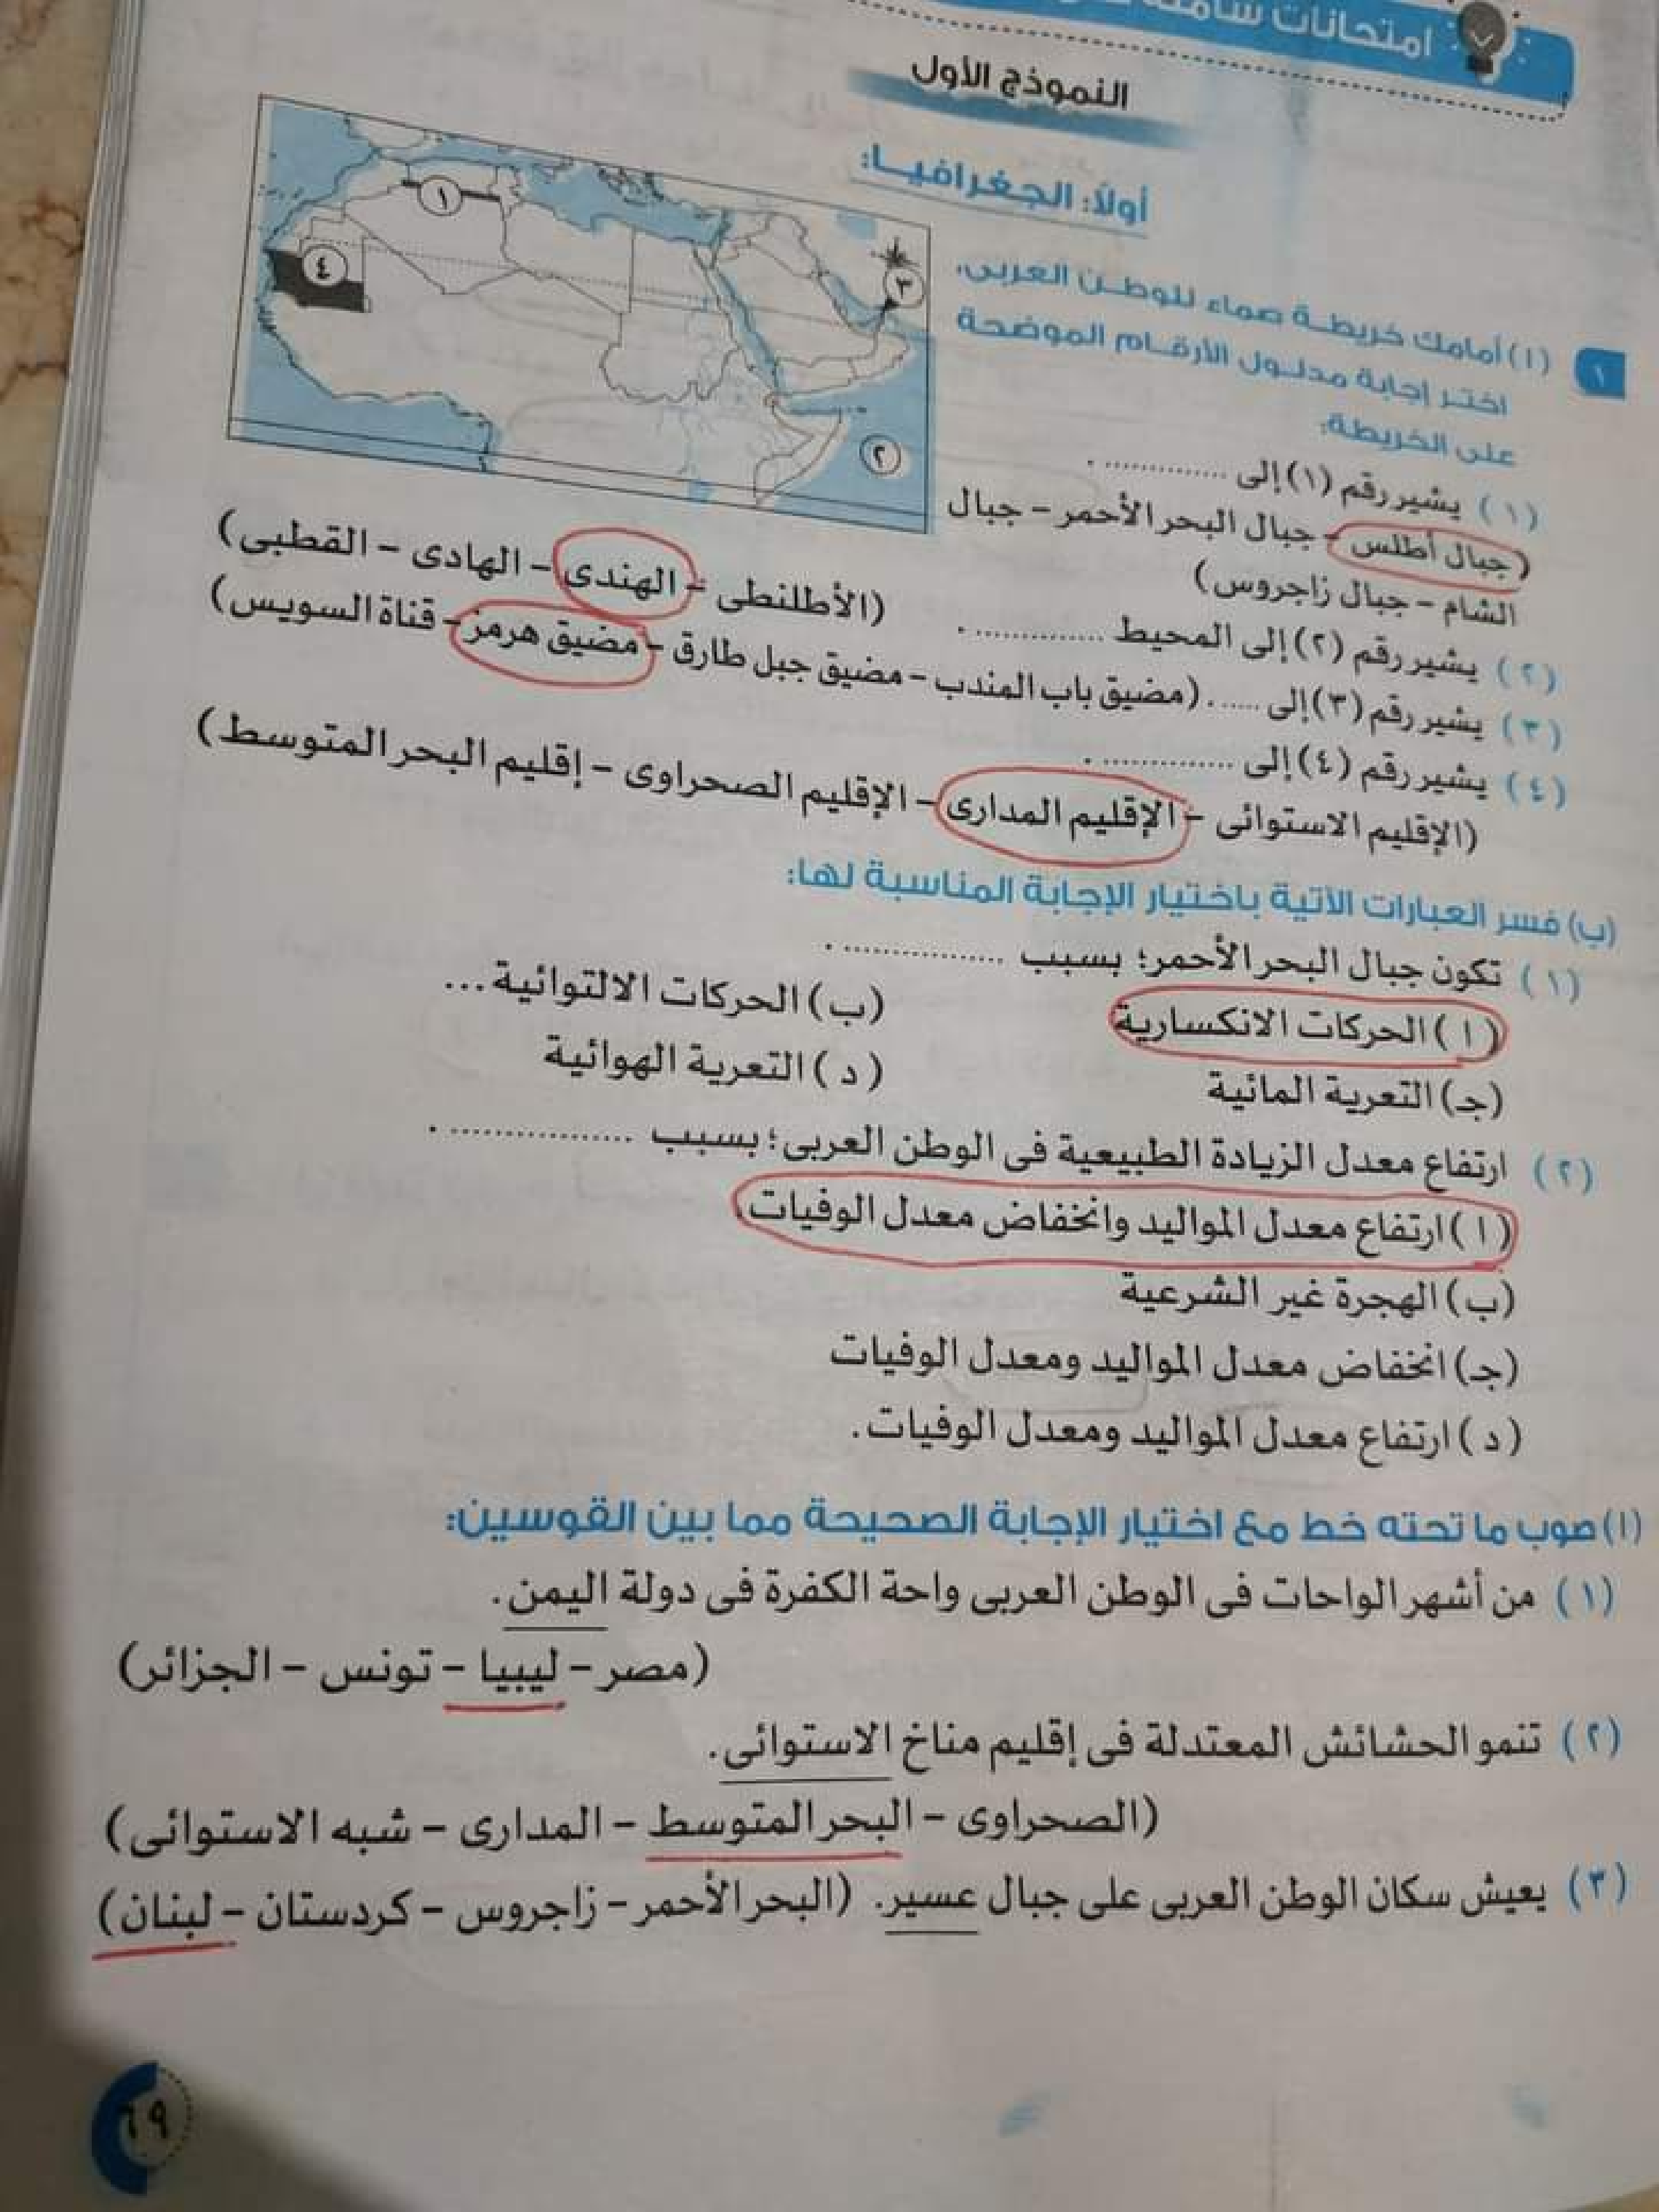 امتحانات شاملة
النموذج الأول
أولًا: الجغرافيا:
١
(١) أمامك خريطة صماء للوطن العربى،
اختر إجابة مدلول الأرقام الموضحة
على الخريطة:
١
٤
٣
٢
(١) يشير رقم (١) إلى .............. .
(جبال أطلس - جبال البحر الأحمر - جبال
الشام - جبال زاجروس)
(٢) يشير رقم (٢) إلى المحيط .............. .
(الأطلنطى - الهندى - الهادى - القطبى)
(٣) يشير رقم (٣) إلى ..... . (مضيق باب المندب - مضيق جبل طارق - مضيق هرمز - قناة السويس)
(٤) يشير رقم (٤) إلى .............. .
(الإقليم الاستوائى - الإقليم المدارى - الإقليم الصحراوى - إقليم البحر المتوسط)
(ب) فسر العبارات الآتية باختيار الإجابة المناسبة لها:
(١) تكون جبال البحر الأحمر؛ بسبب ................ .
(ا) الحركات الانكسارية
(ب) الحركات الالتوائية ...
(جـ) التعرية المائية
(د) التعرية الهوائية
(٢) ارتفاع معدل الزيادة الطبيعية فى الوطن العربى؛ بسبب .................. .
(ا) ارتفاع معدل المواليد وانخفاض معدل الوفيات.
(ب) الهجرة غير الشرعية
(جـ) انخفاض معدل المواليد ومعدل الوفيات
(د) ارتفاع معدل المواليد ومعدل الوفيات.
(ا) صوب ما تحته خط مع اختيار الإجابة الصحيحة مما بين القوسين:
(١) من أشهر الواحات فى الوطن العربى واحة الكفرة فى دولة اليمن.
(مصر - ليبيا - تونس - الجزائر)
(٢) تنمو الحشائش المعتدلة فى إقليم مناخ الاستوائى.
(الصحراوى - البحر المتوسط - المدارى - شبه الاستوائى)
(٣) يعيش سكان الوطن العربى على جبال عسير. (البحر الأحمر - زاجروس - كردستان - لبنان)
٦٩